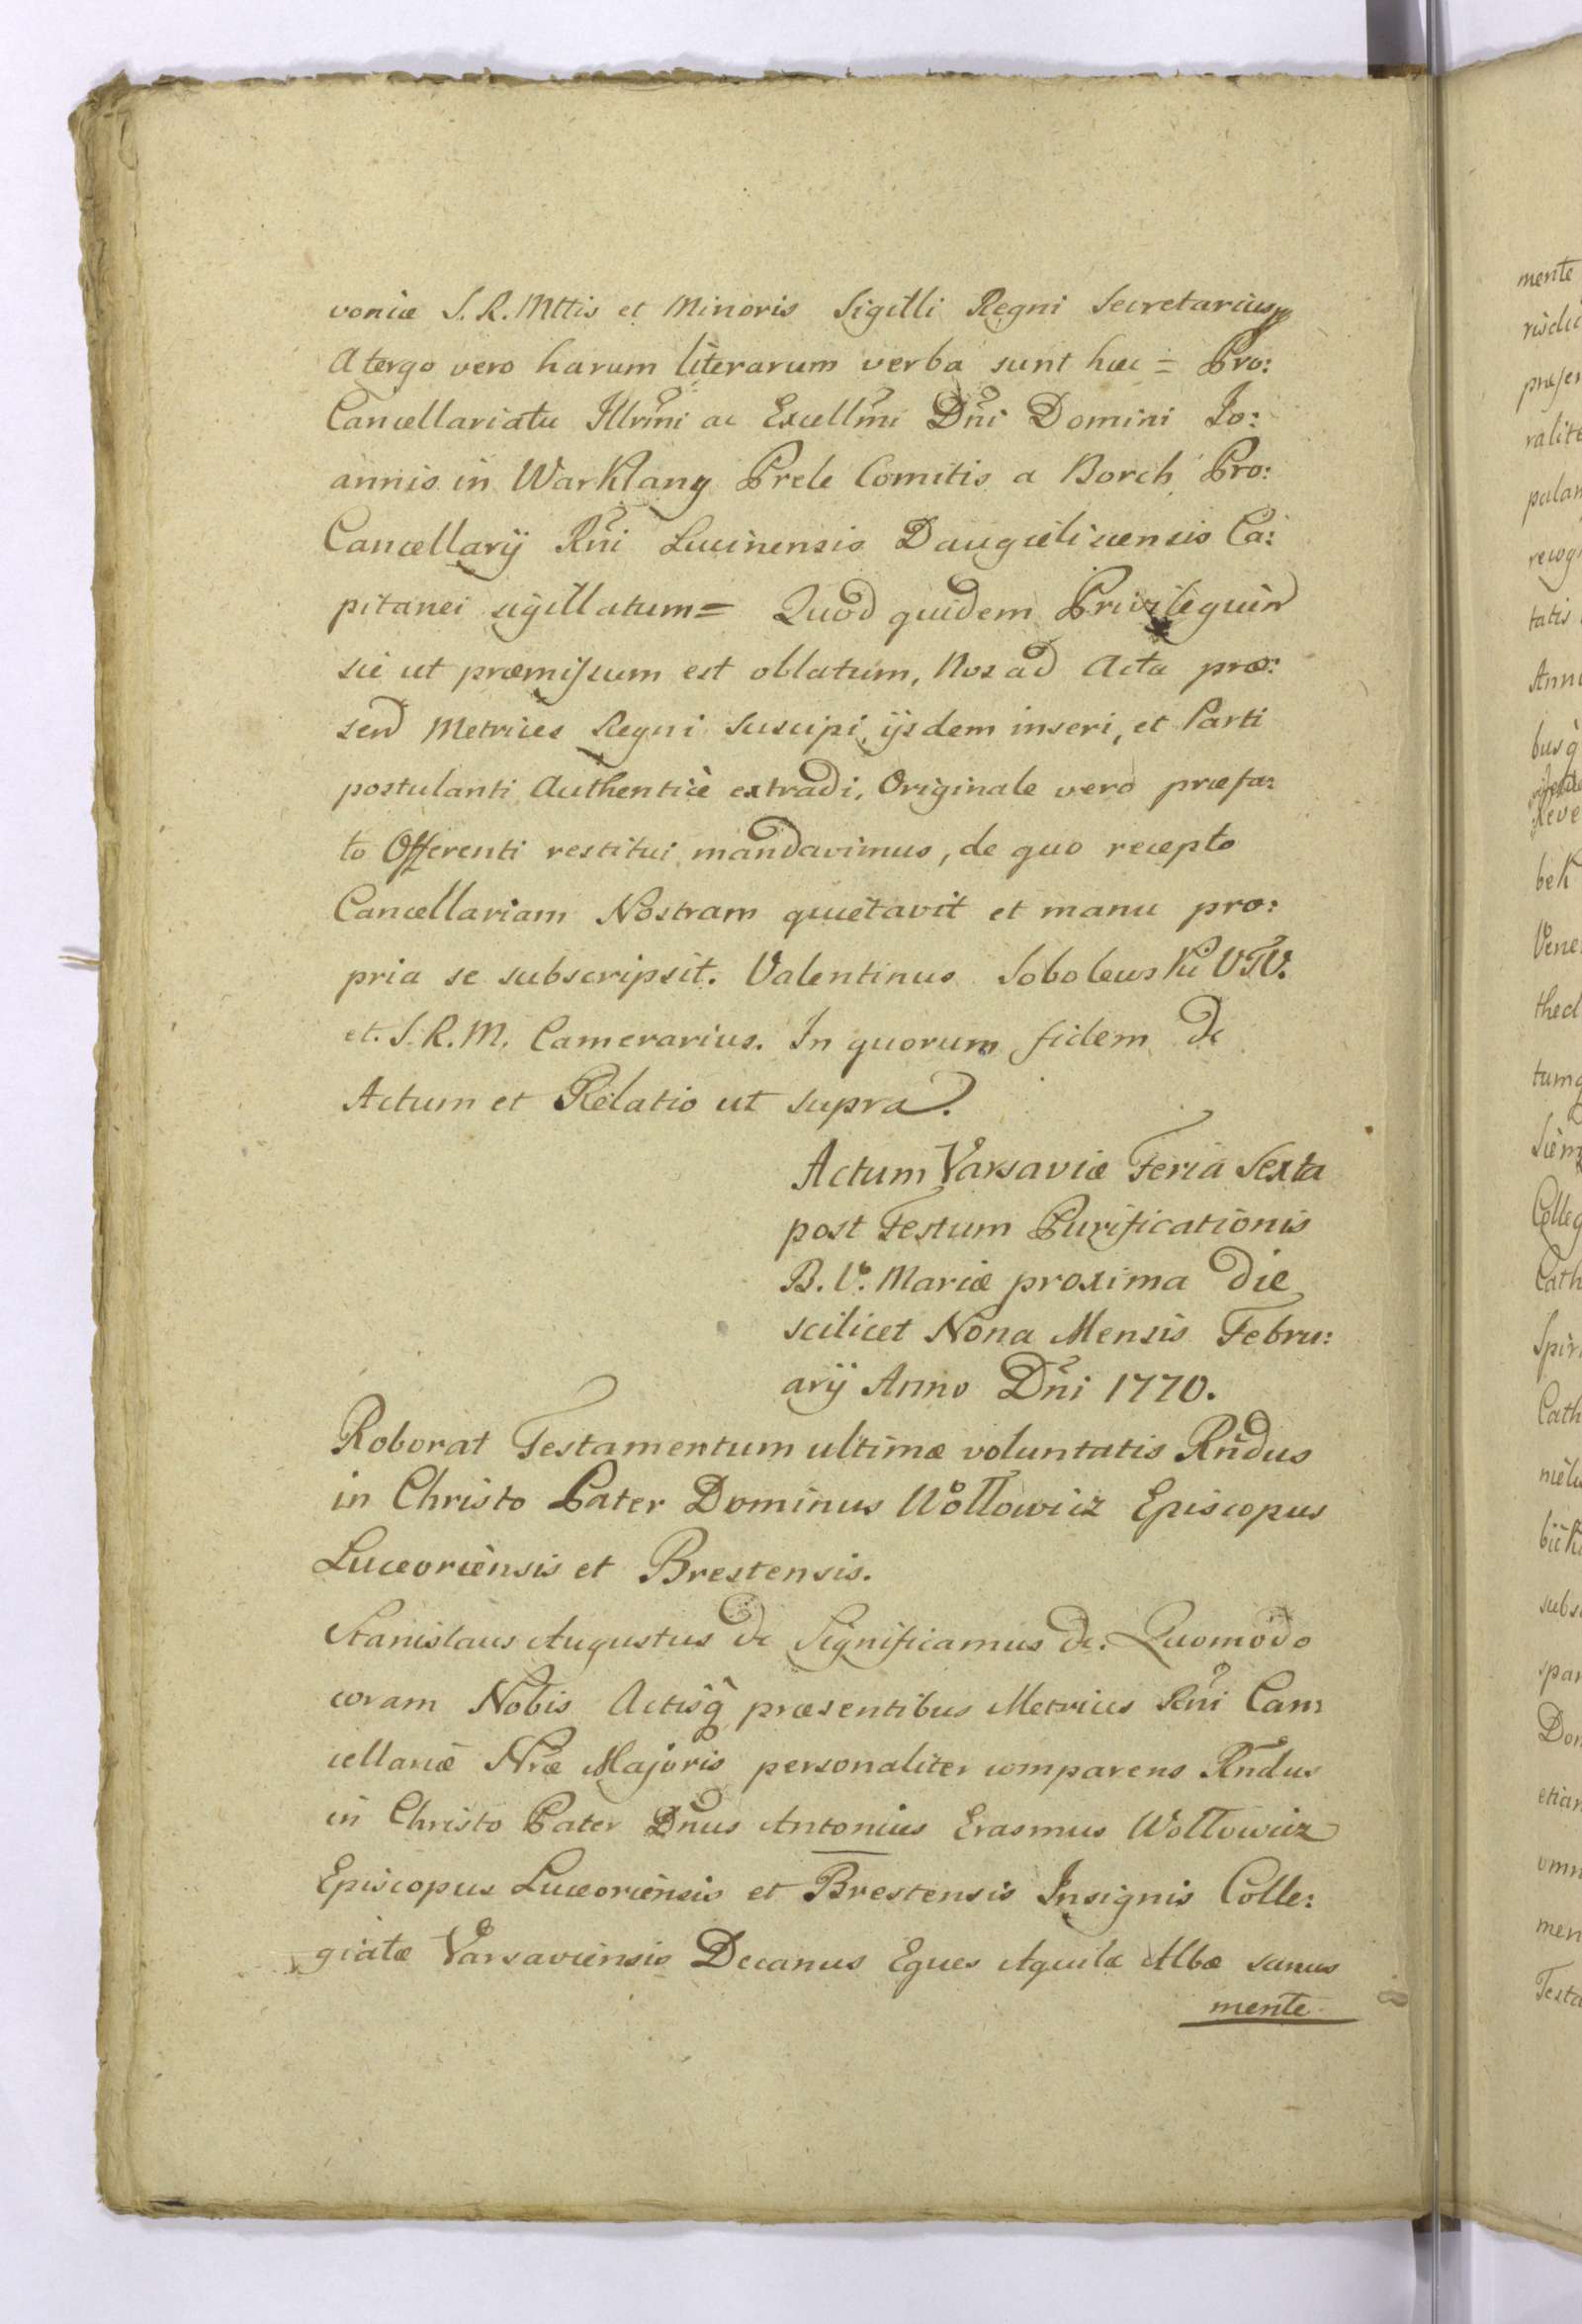 voniæ S. R. Mttis et Minoris Sigilli Regni Secretarius
A tergo vero harum literarum verba sunt hæc = Pro:
Cancellariatu Illrm̃i ac Excellm̃i Dñi Domini Jo:
annis in Warklany Prele Comitis a Borch Pro:
Cancellarij Rñi Lucinensis Daugielicensis Ca:
pitanei sigillatum = Quod quidem Privilegium
sic ut præmissum est oblatum, Nos ad Acta præ:
sen Metrices Regni Suscipi, ijsdem inseri, et Parti
postulanti Authenticè extradi, Originale vero præfa:
to Offerenti restitui mandavimus, de quo recepto
Cancellariam Nostram quietavit et manu pro:
pria se subscripsit. Valentinus Sobolewski VTV.
et. S. R. M. Camerarius. In quorum fidem &c
Actum et Relatio ut supra.
Actum Varsaviæ Feria Sexta
post Festum Purificationis
B. V. Mariæ proxima die
scilicet Nona Mensis Febru:
arij Anno Dñi 1770.
Roborat Testamentum ultimæ voluntatis Rñdus
in Christo Pater Dominus Wołłowicz Episcopus
Luceoriensis et Brestensis.
Stanislaus Augustus &c Significamus &c: Quomodo
coram Nobis Actisq̃ præsentibus Metrices Rñi Can:
cellariæ Nræ Majoris personaliter comparens Rñdus
in Christo Pater Dñus Antonius Erasmus Wołłowicz
Episcopus Luceoriensis et Brestensis Insignis Colle:
giatæ Varsaviensis Decanus Eques Aquilæ Albæ sanus
mente